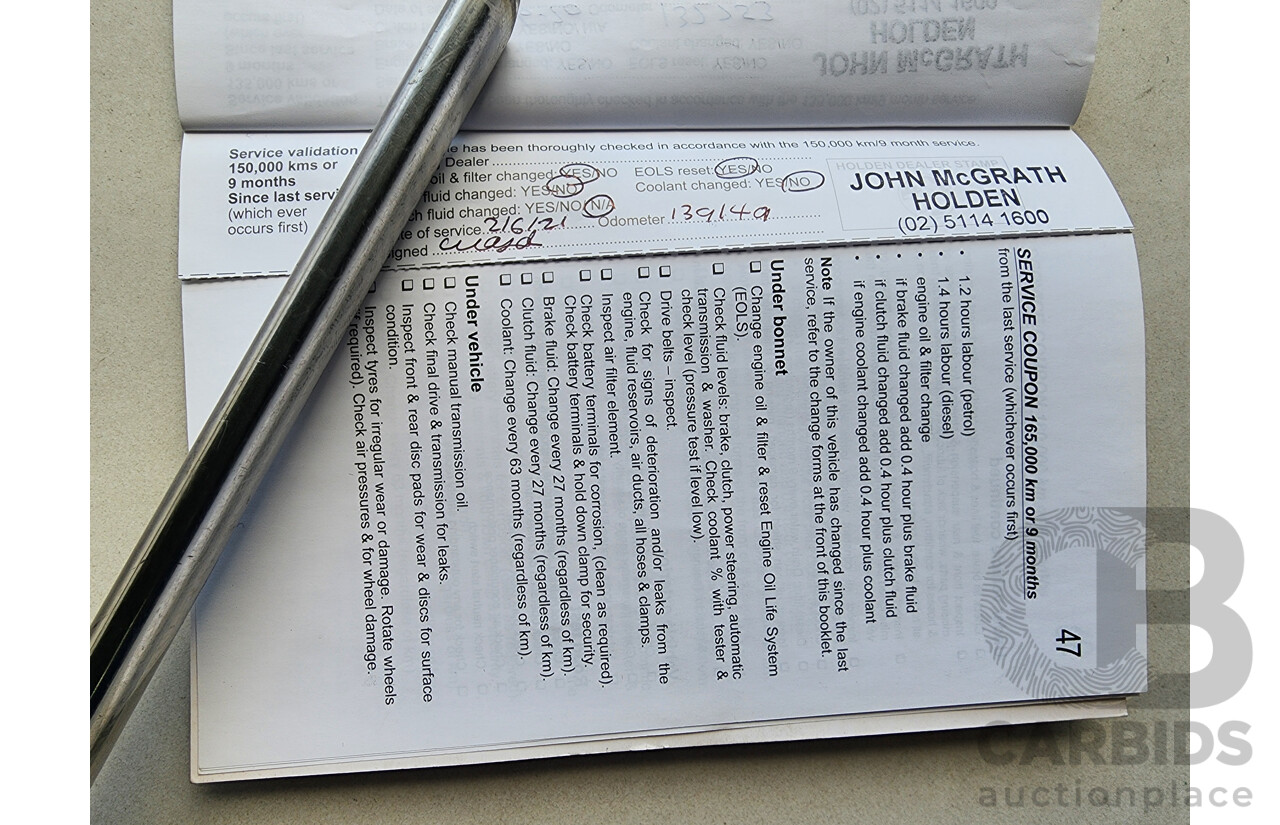 Service validation
150,000 kms or
9 months
Since last
(which ever
occurs first)
has been thoroughly checked in accordance with the 150,000 km/9 month service.
Dealer
oil & filter changed: YES/NO EOLS reset: YES/NO
fluid changed: YES/NO Coolant changed: YES/NO
fluid changed: YES/NO/N/A
of service 2/6/21 Odometer 139149
HOLDEN DEALER STAMP
JOHN McGRATH
HOLDEN
(02) 5114 1600
SERVICE COUPON 165,000 km or 9 months
from the last service (whichever occurs first)
47
• 1.2 hours labour (petrol)
• 1.4 hours labour (diesel)
• engine oil & filter change
• if brake fluid changed add 0.4 hour plus brake fluid
• if clutch fluid changed add 0.4 hour plus clutch fluid
• if engine coolant changed add 0.4 hour plus coolant
Note If the owner of this vehicle has changed since the last
service, refer to the change forms at the front of this booklet.
Under bonnet
❑ Change engine oil & filter & reset Engine Oil Life System
(EOLS).
❑ Check fluid levels: brake, clutch, power steering, automatic
transmission & washer. Check coolant % with tester &
check level (pressure test if level low).
❑ Drive belts – inspect
❑ Check for signs of deterioration and/or leaks from the
engine, fluid reservoirs, air ducts, all hoses & clamps.
❑ Inspect air filter element.
❑ Check battery terminals for corrosion, (clean as required).
Check battery terminals & hold down clamp for security.
❑ Brake fluid: Change every 27 months (regardless of km).
❑ Clutch fluid: Change every 27 months (regardless of km).
❑ Coolant: Change every 63 months (regardless of km).
Under vehicle
❑ Check manual transmission oil.
❑ Check final drive & transmission for leaks.
❑ Inspect front & rear disc pads for wear & discs for surface
condition.
❑ Inspect tyres for irregular wear or damage. Rotate wheels
required). Check air pressures & for wheel damage.
CARBIDS
auctionplace